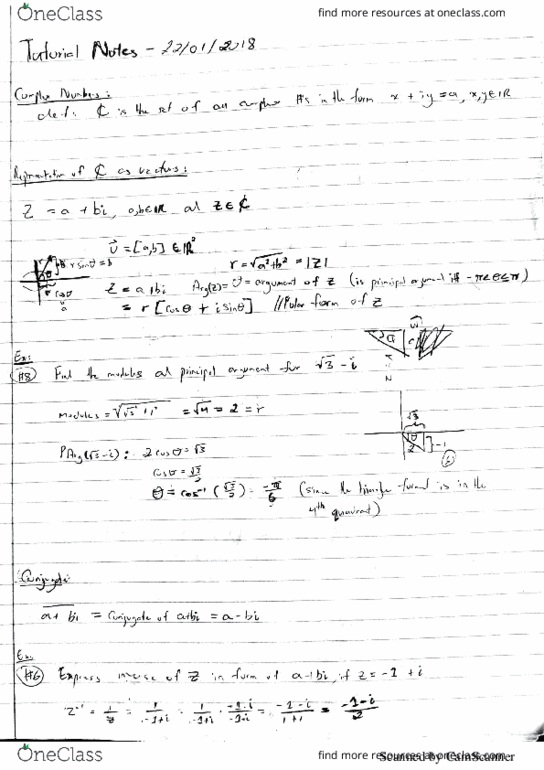 OneClass
find more resources at oneclass.com
Tutorial Notes - 22/01/2018
Complex Numbers:
def: ℂ is the set of all complex #s in the form x + iy = a, x,y∈ℝ
Representation of ℂ as vectors:
Z = a + bi, a,b∈ℝ and Z∈ℂ
v⃗ = [a,b] ∈ ℝ²
r = √a²+b² = |z|
r sinθ = b
r cosθ
a
Z = a + bi
Arg(z) = θ = argument of z (is principal argument iff -π<θ≤π)
= r [cosθ + i sinθ] //Polar form of z
Ex:
#8 Find the modulus and principal argument for √3 - i
Modulus = = √4 = 2 = r
√3
θ
2
-1
PArg(√3-i): 2cosθ = √3
cosθ = √3/2
θ = cos⁻¹(√3/2) = -π/6 (since the triangle formed is in the
4th quadrant)
Conjugate:
a + bi = conjugate of a+bi = a - bi
Ex:
#6 Express inverse of Z in form of a+bi, if z = -1 + i
Z⁻¹ = 1/z = 1/-1+i = 1/-1+i · -1-i/-1-i = -1-i/1+1 = -1-i/2
OneClass
find more resources at oneclass.com
Scanned by CamScanner